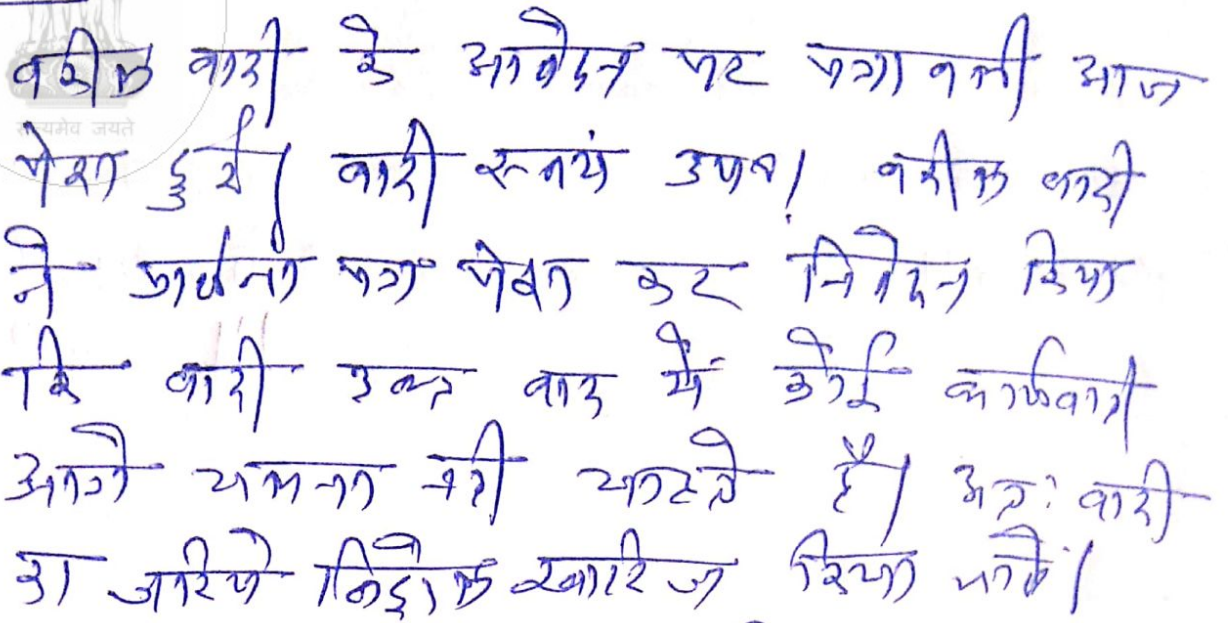 सत्यमेव जयते
वकील वादी के आवेदन पर पत्रावली आज
पेश हुई। वादी स्वयं उप०। वकील वादी
ने प्रार्थना पत्र पेश कर निवेदन किया
कि वादी उक्त वाद में कोई कार्यवाही
आगे चलाना नहीं चाहते है। अतः वादी
का जरिये खारिज किया जावें।